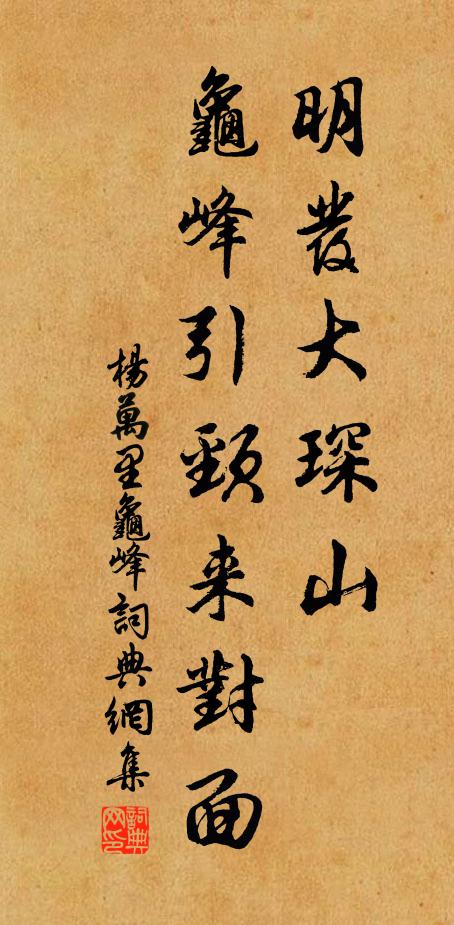 明發大琛山
龜峰引頸来對面
楊萬里龜峰詞典網集
詞典网印